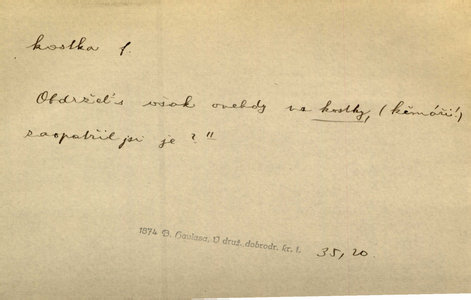 kostka f.
Obdržel's však onehdy na kostky, (kěmáři!)
zaopatřil jsi je?"
1874 B. Havlasa, V druž. dobrodr. kr. I. 35, 20.